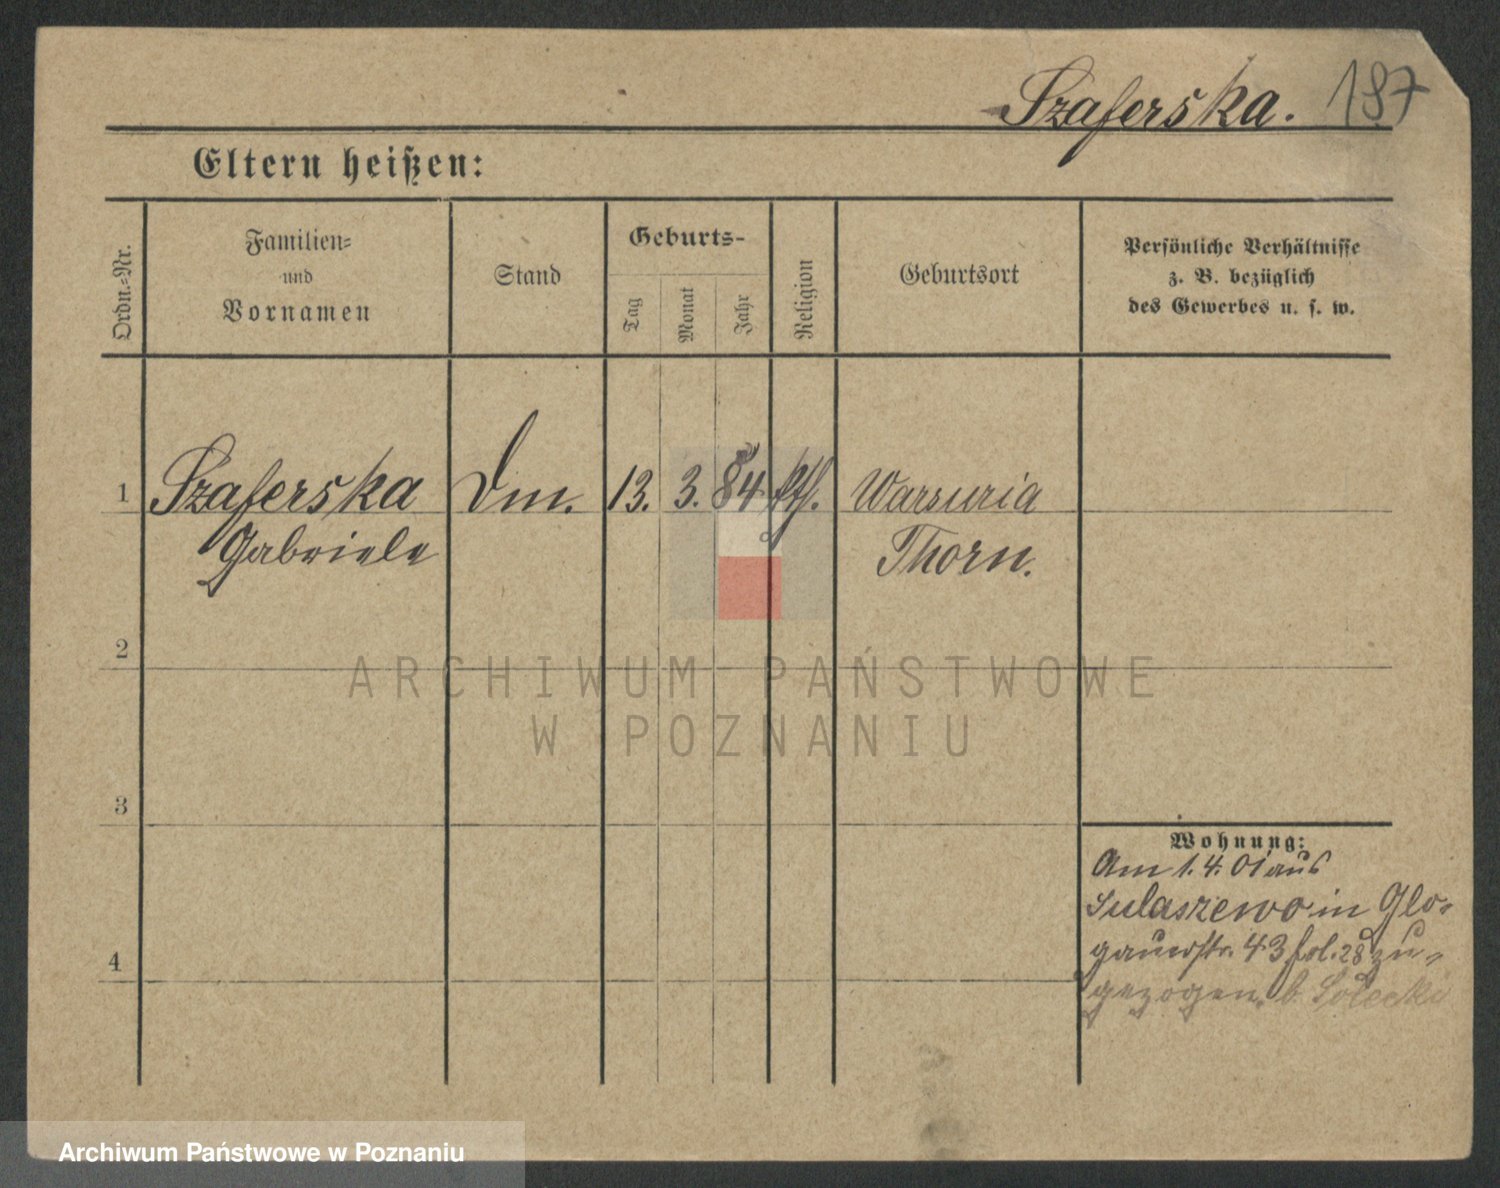 Szaferska. 187
Eltern heißen:
Ordn.-Nr.
Familien-
und
Vornamen
Stand
Geburts-
Tag
Monat
Jahr
Religion
Geburtsort
Persönliche Verhältnisse
z. B. bezüglich
des Gewerbes u. s. w.
1 Szaferska 13. 3. 84 kth.
Gabriele Thorn.
2
ARCHIWUM PAŃSTWOWE
W POZNANIU
3
Wohnung:
Am 1. 4. 01 aus
Sulaszewo in Glo-
gauerstr. 43 fol. 28 zu-
4
gezogen. b. Solecki
Archiwum Państwowe w Poznaniu